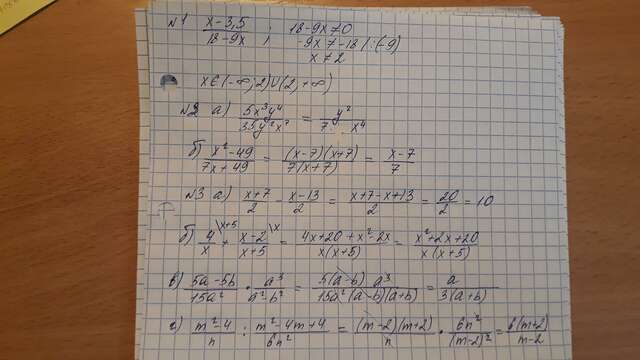 №1 (x-3,5)/(18-9x) ; 18-9x≠0
-9x≠-18 / :(-9)
x≠2
x∈(-∞;2)∪(2,+∞)
№2 а) 5x³y⁴/35y²x⁷ = y²/7x⁴
б) (x²-49)/(7x+49) = (x-7)(x+7)/7(x+7) = (x-7)/7
№3 а) (x+7)/2 - (x-13)/2 = (x+7-x+13)/2 = 20/2 = 10
б) 4/x \x+5 + (x-2)/(x+5) \x = (4x+20+x²-2x)/x(x+5) = (x²+2x+20)/x(x+5)
в) (5a-5b)/15a² · a³/(a²-b²) = 5(a-b) a³/15a²(a-b)(a+b) = a/3(a+b)
г) (m²-4)/n : (m²-4m+4)/6n² = (m-2)(m+2)/n · 6n²/(m-2)² = 6(m+2)/(m-2)